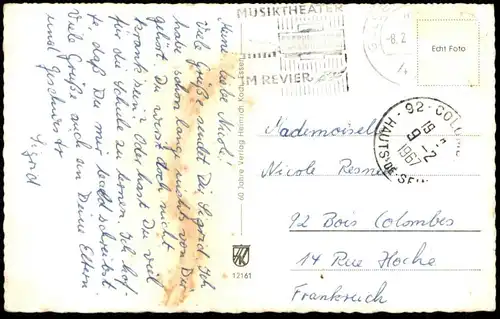 Meine liebe Nicol!
Viele Grüße sendet Dir Sigrid. Ich
habe schon lange nichts von Dir
gehört. Du wirst doch nicht
krank sein? Oder hast Du viel
für die Schule zu lernen. Ich hof-
fe, daß Du mir bald schreibst.
Viele Grüße auch an Deine Eltern
und Geschwister
Sigrid
Schöning & Co
12161
MUSIKTHEATER
IM REVIER
-8.2
Echt Foto
92 - COLOMB
19 H
9 -2
1967
HAUTS-DE-SEINE
Mademoiselle
Nicole
92 Bois Colombes
14 Rue Hoche
Frankreich